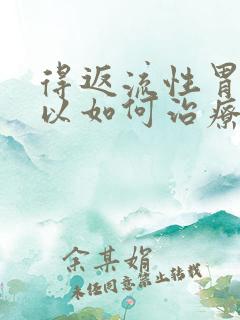 得返流性胃
以如何治療
余某娟
未经同意禁止转载